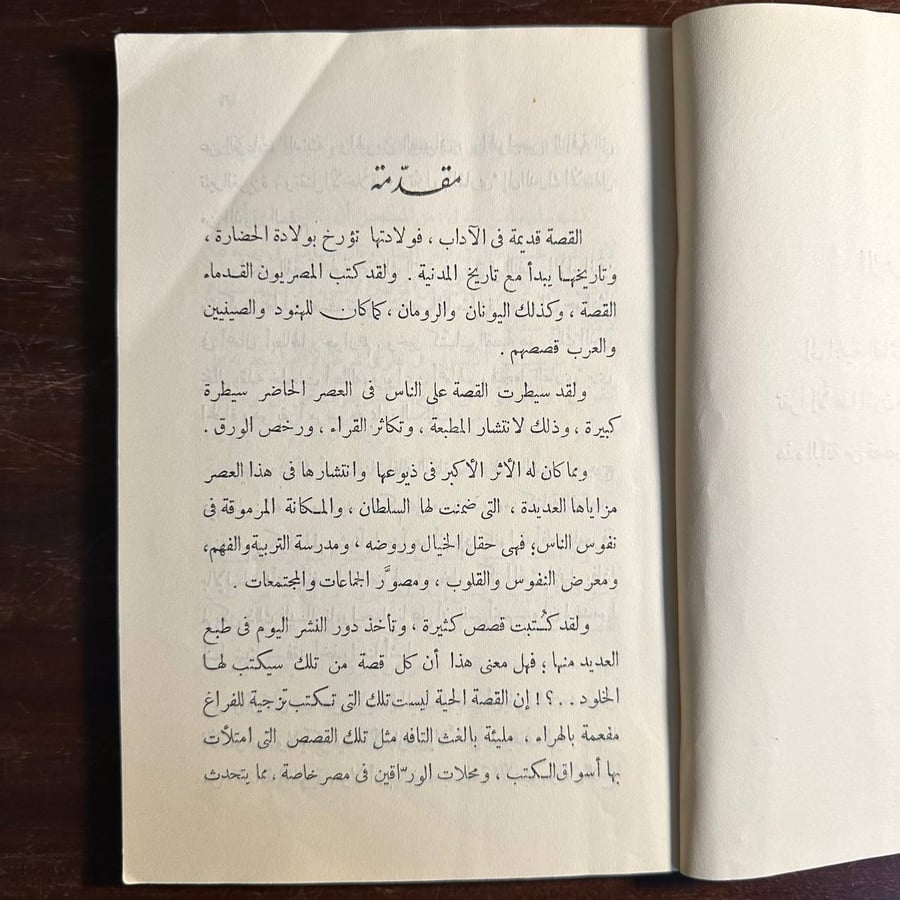 مقدّمة
القصة قديمة فى الآداب ، فولادتها تؤرخ بولادة الحضارة ،
وتاريخها يبدأ مع تاريخ المدنية . ولقد كتب المصريون القدماء
القصة ، وكذلك اليونان والرومان ، كما كان للهنود والصينيين
والعرب قصصهم .
ولقد سيطرت القصة على الناس فى العصر الحاضر سيطرة
كبيرة ، وذلك لانتشار المطبعة ، وتكاثر القراء ، ورخص الورق .
ومما كان له الأثر الأكبر فى ذيوعها وانتشارها فى هذا العصر
مزاياها العديدة ، التى ضمنت لها السلطان ، والمكانة المرموقة فى
نفوس الناس؛ فهى حقل الخيال وروضه ، ومدرسة التربية والفهم،
ومعرض النفوس والقلوب ، ومصوَّر الجماعات والمجتمعات .
ولقد كُتبت قصص كثيرة ، وتأخذ دور النشر اليوم فى طبع
العديد منها ؛ فهل معنى هذا أن كل قصة من تلك سيكتب لها
الخلود . . ؟ ! إن القصة الحية ليست تلك التى تكتب تزجية للفراغ
مفعمة بالهراء ، مليئة بالغث التافه مثل تلك القصص التى امتلأت
بها أسواق الكتب ، ومحلات الورّاقين فى مصر خاصة ، مما يتحدث